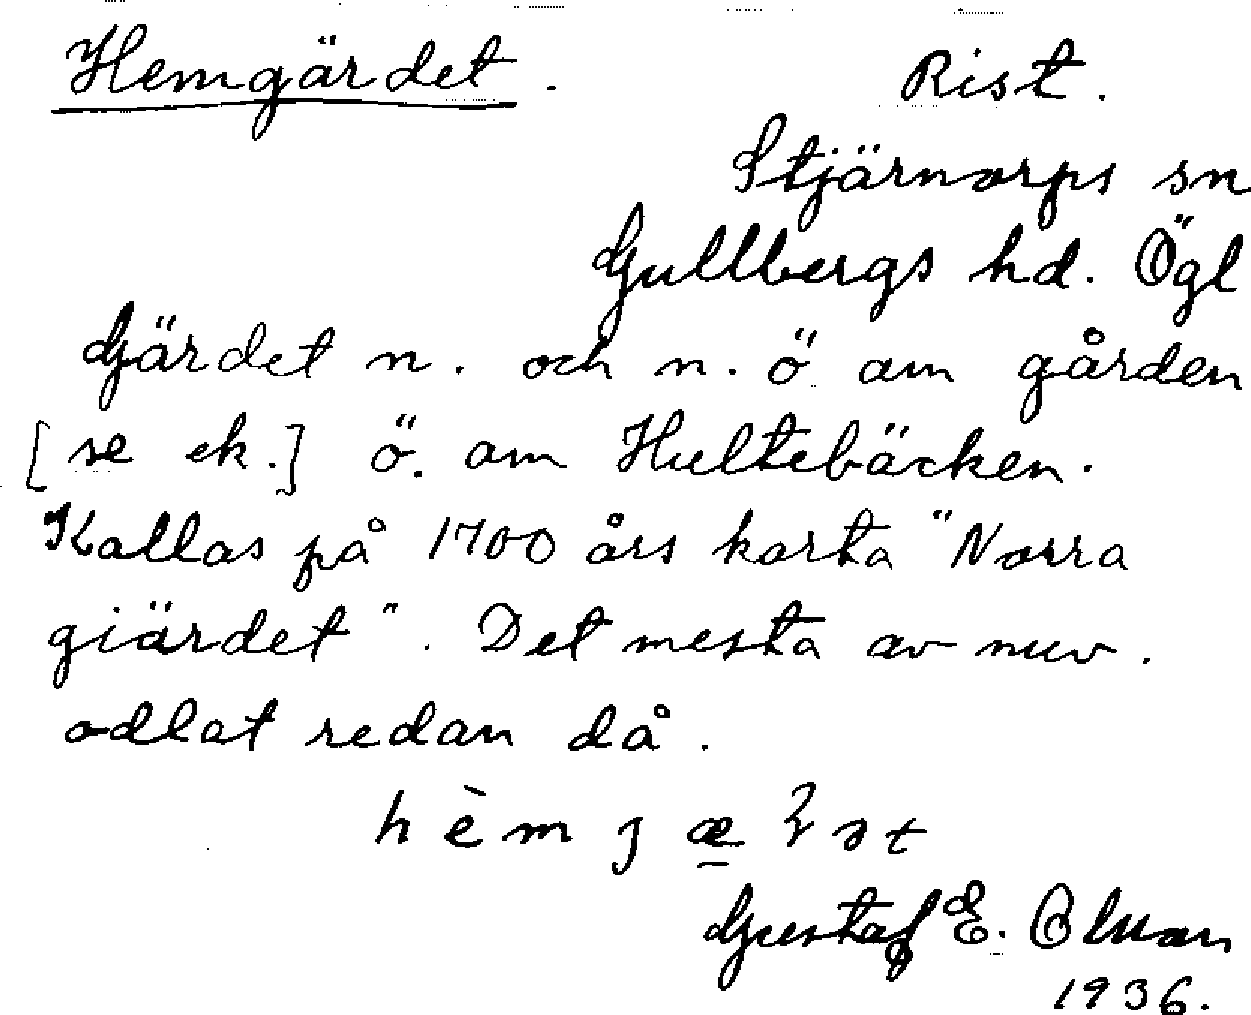 Hemgärdet. Rist.
Stjärnorps sn
Gullbergs hd. Ögl
Gärdet n. och n. ö om gården
[se ek.] ö. om Hultebäcken.
Kallas på 1700 års karta "Norra
giärdet". Det mesta av nuv.
odlat redan då.
hèm j
Gustaf E.
1936.